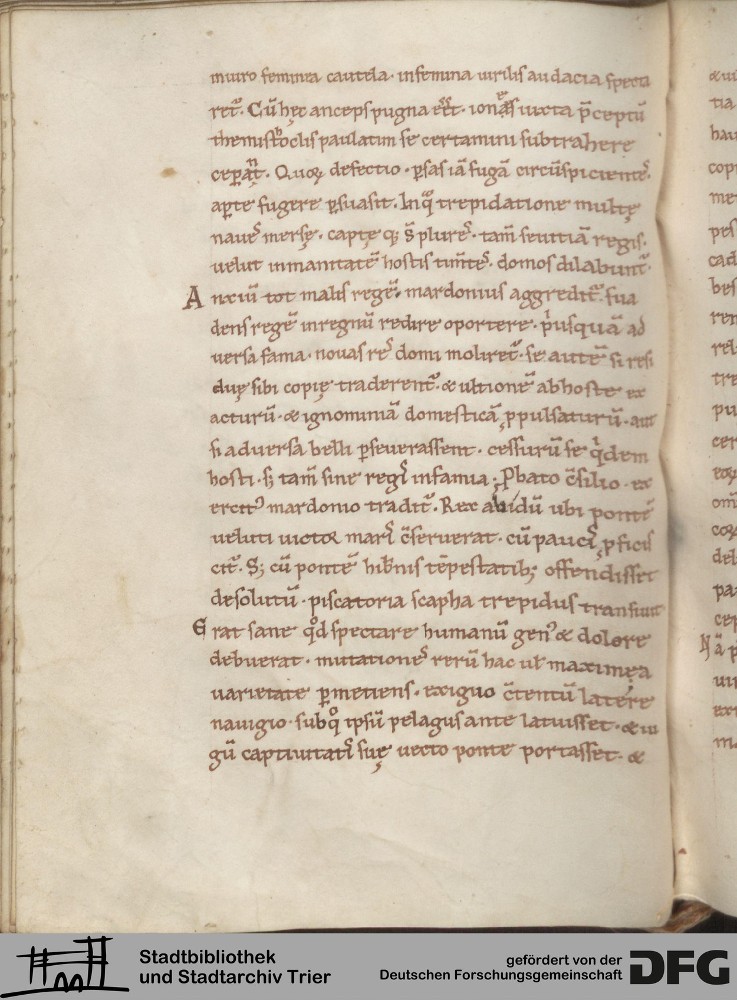 muro feminea cautela· in femina uirilis audacia specta
ret̃· Cũ hęc anceps pugna eẽt· iones iuxta p̃ceptũ
themistoclis paulatim se certamini subtrahere
ceperãt· Quoꝝ defectio· ꝑsas iã fugã circũspicientes·
aꝑte fugere ꝑsuasit· In qͣ trepidatione multę
naues mersę· captę q; s̃ plures· tam̃ seuitiã regis·
uelut inmanitatẽ hostis tim̃tes· domos dilabunt̃·
Anxiũ tot malis regẽ· mardonius aggredit̃· sua
dens regẽ in regnũ redire oportere· pͥusquã ad
uersa fama· nouas res domi moliret̃· se autẽ si resi
duę sibi copię traderent̃· & ultionẽ ab hoste ex
acturũ· & ignominiã domesticã ꝓpulsaturũ· aut
si aduersa belli ꝑseuerassent· cessurũ se qͥdem
hosti· s; tam̃ sine regis infamia; Ꝓbato c̃silio· ex
ercitꝰ mardonio tradit̃· Rex abidũ ubi pontẽ
ueluti uictor maris c̃seruerat· cũ paucis ꝓficis
cit̃· S; cũ pontẽ hib̃nis tẽpestatib; offendisset
desolutũ· piscatoria scapha trepidus transiuit
Erat sane qd̃ spectare humanũ genꝰ & dolore
debuerat· mutationes rerũ hac uł maximęa
uarietate ꝑmetiens· exiguo c̃tentũ latere
nauigio· sub qͦ ipsũ pelagus ante latuisset· & iu
gũ captiuitatis suę uecto ponte portasset· &
Stadtbibliothek
und Stadtarchiv Trier
gefördert von der
Deutschen Forschungsgemeinschaft
DFG